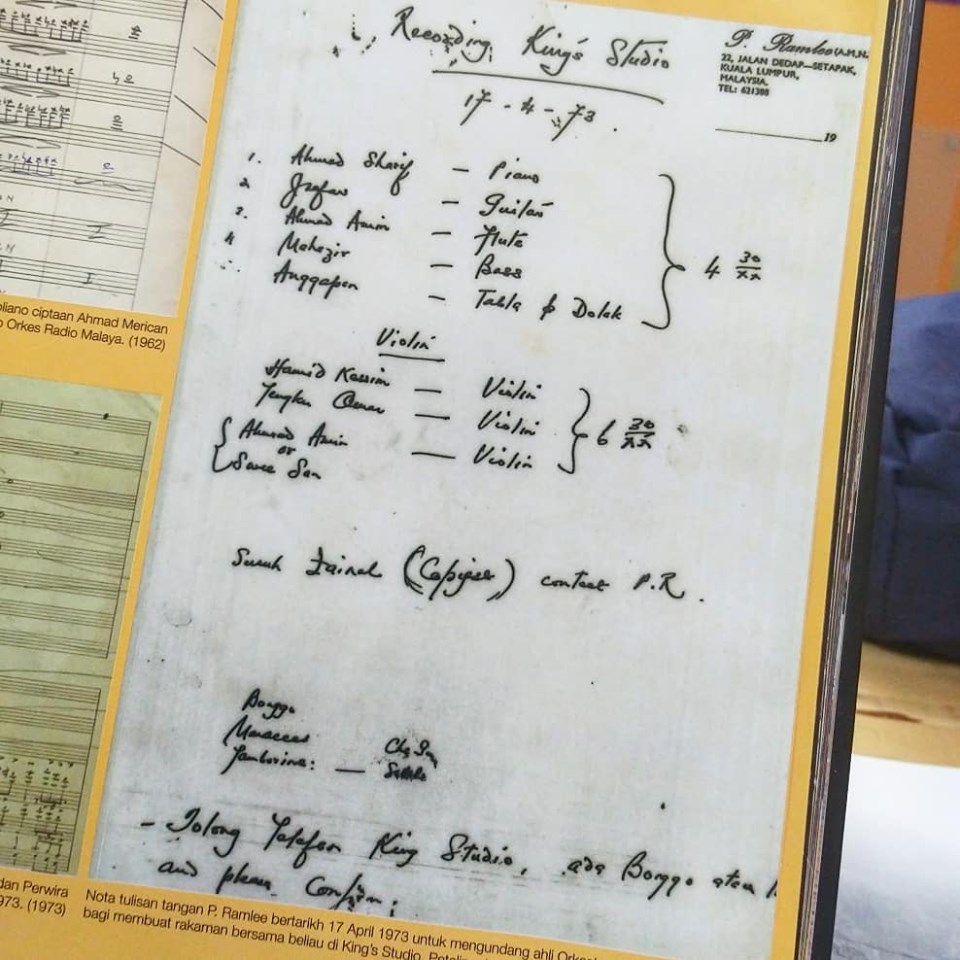 Recording King's Studio
17-4-73.
P. Ramlee A.M.N.
22, JALAN DEDAP—SETAPAK,
KUALA LUMPUR,
MALAYSIA.
TEL: 621388
19
1. Ahmad Sharif — Piano
2 — Guitar
Ahmad Amin — Flute
4 Mahazir — Bass
Anggapan — Tabla & Dolak
4 30
Violin
Hamid Kassim — Violin
Tengku Omar — Violin
Ahmad Amin — Violin
or
6 30
Suruh Zainal (Copyser) contact P.R.
Bonggo
Maraccas
Tamborine: —
- Tolong Talefon King Studio, ada Bonggo atau
and please Confirm:
oliano ciptaan Ahmad Merican
o Orkes Radio Malaya. (1962)
dan Perwira
973. (1973)
Nota tulisan tangan P. Ramlee bertarikh 17 April 1973 untuk mengundang ahli Orkes
bagi membuat rakaman bersama beliau di King's Studio,